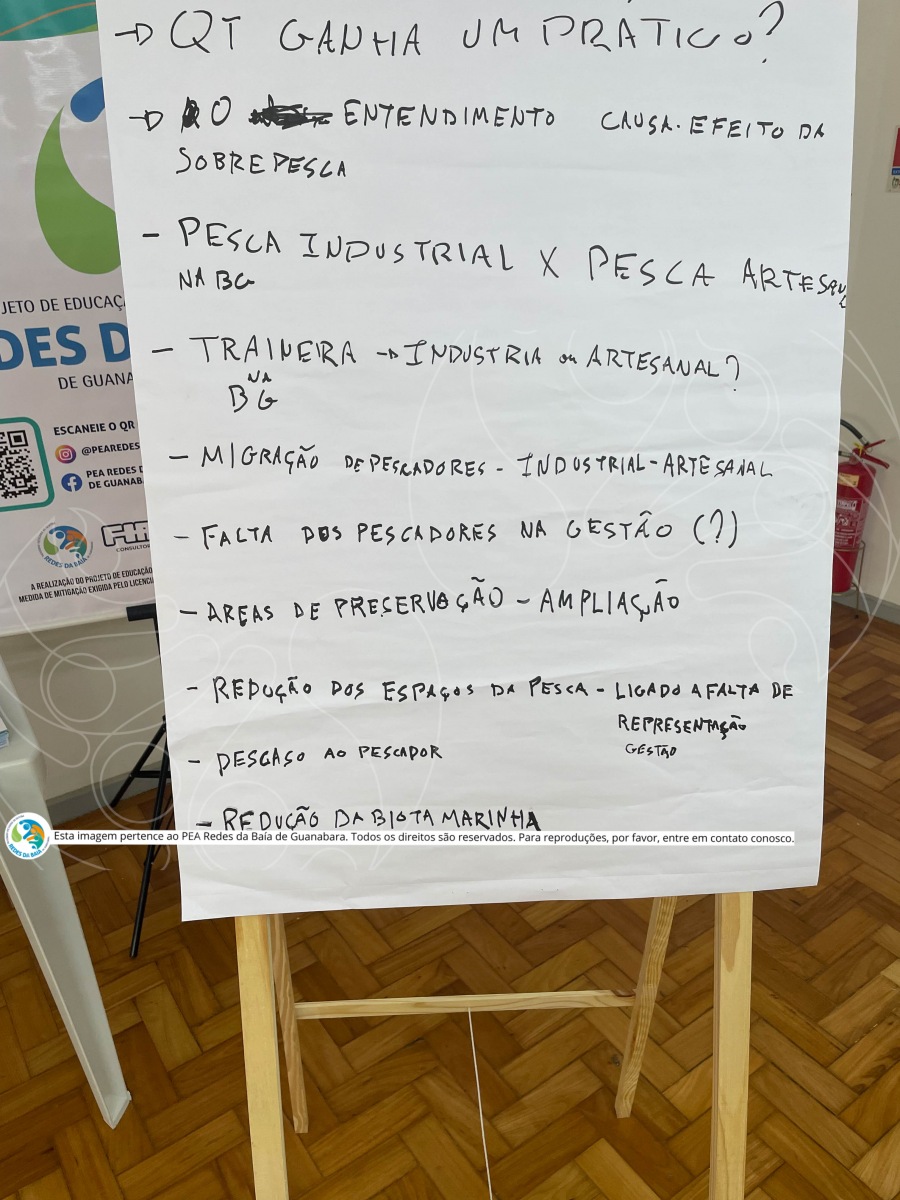 → QT GANHA UM PRÁTICO?
→ O ENTENDIMENTO CAUSA. EFEITO DA
SOBREPESCA
- PESCA INDUSTRIAL X PESCA ARTESANAL
NA BG
- TRAINEIRA → INDUSTRIA ou ARTESANAL?
NA
BG
- MIGRAÇÃO DE PESCADORES - INDUSTRIAL-ARTESANAL
- FALTA DOS PESCADORES NA GESTÃO (?)
- AREAS DE PRESERVAÇÃO - AMPLIAÇÃO
- REDUÇÃO DOS ESPAÇOS DA PESCA - LIGADO A FALTA DE
REPRESENTAÇÃO
GESTÃO
- DESCASO AO PESCADOR
- REDUÇÃO DA BIOTA MARINHA
Esta imagem pertence ao PEA Redes da Baía de Guanabara. Todos os direitos são reservados. Para reproduções, por favor, entre em contato conosco.
REDES DA BAÍA
JETO DE EDUCAÇ
DES D
DE GUANA
ESCANEIE O QR
@PEAREDES
PEA REDES D
DE GUANAB
REDES DA BAÍA
CONSULTOR
A REALIZAÇÃO DO PROJETO DE EDUCAÇÃO
MEDIDA DE MITIGAÇÃO EXIGIDA PELO LICENCI